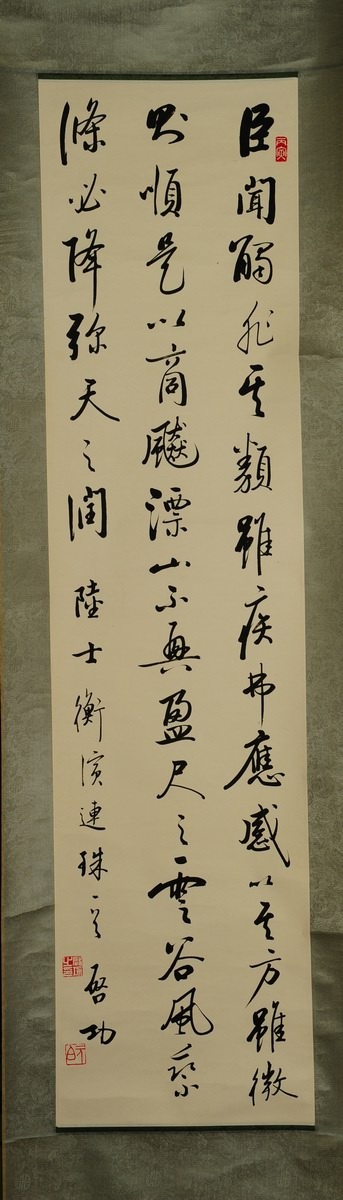 臣聞觸非其類雖疾弗應感以其方雖微
則順是以商飇漂山不興盈尺之雲谷風乘
條必降彌天之潤 陸士衡演連珠一首 啓功